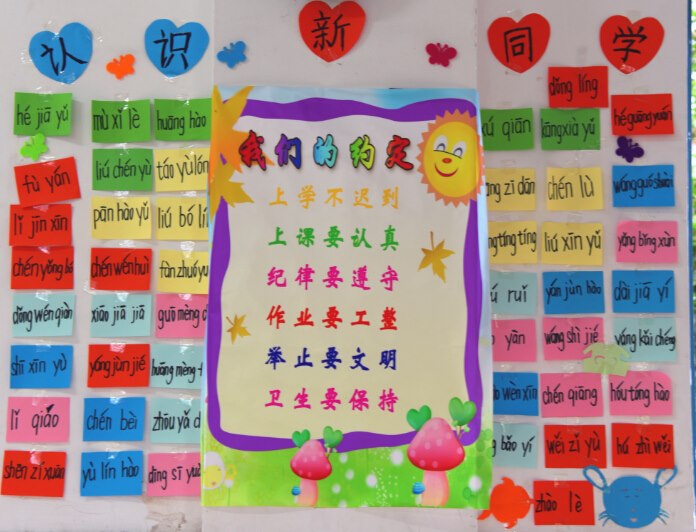 认识新同学
我们的约定
上学不迟到
上课要认真
纪律要遵守
作业要工整
举止要文明
卫生要保持
hé jiā yǔ
fù yán
lǐ jīn xīn
chén yǒng bó
dǒng wén qiàn
shī xīn yù
lǐ qiáo
shēn zǐ xuān
mù xǐ lè
liú chén yù
pān hào yǔ
chén wén huì
xiāo jiā jiā
yáng jùn jié
chén bèi
yù lín hào
huāng hào
táo yǔ lón
liú bó lí
fàn zhuó yu
guō mèng
huāng mèng
zhōu yǎ d
dīng sī yuǎ
dǒng líng
xú qiān
ng zī dān
ng tíng tíng
rui
yàn
wèn xīn
bǎo yí
kāng xià yǔ
chén lù
liú xīn yǔ
yán jùn hào
wáng shì jié
chén qiāng
wěi zǐ yù
zhào lè
hé guāng yuán
wáng guó shuài
yǒng bīng xùn
dài jiā yí
yáng kǎi chéng
hóu tóng hào
hú zhì wěi